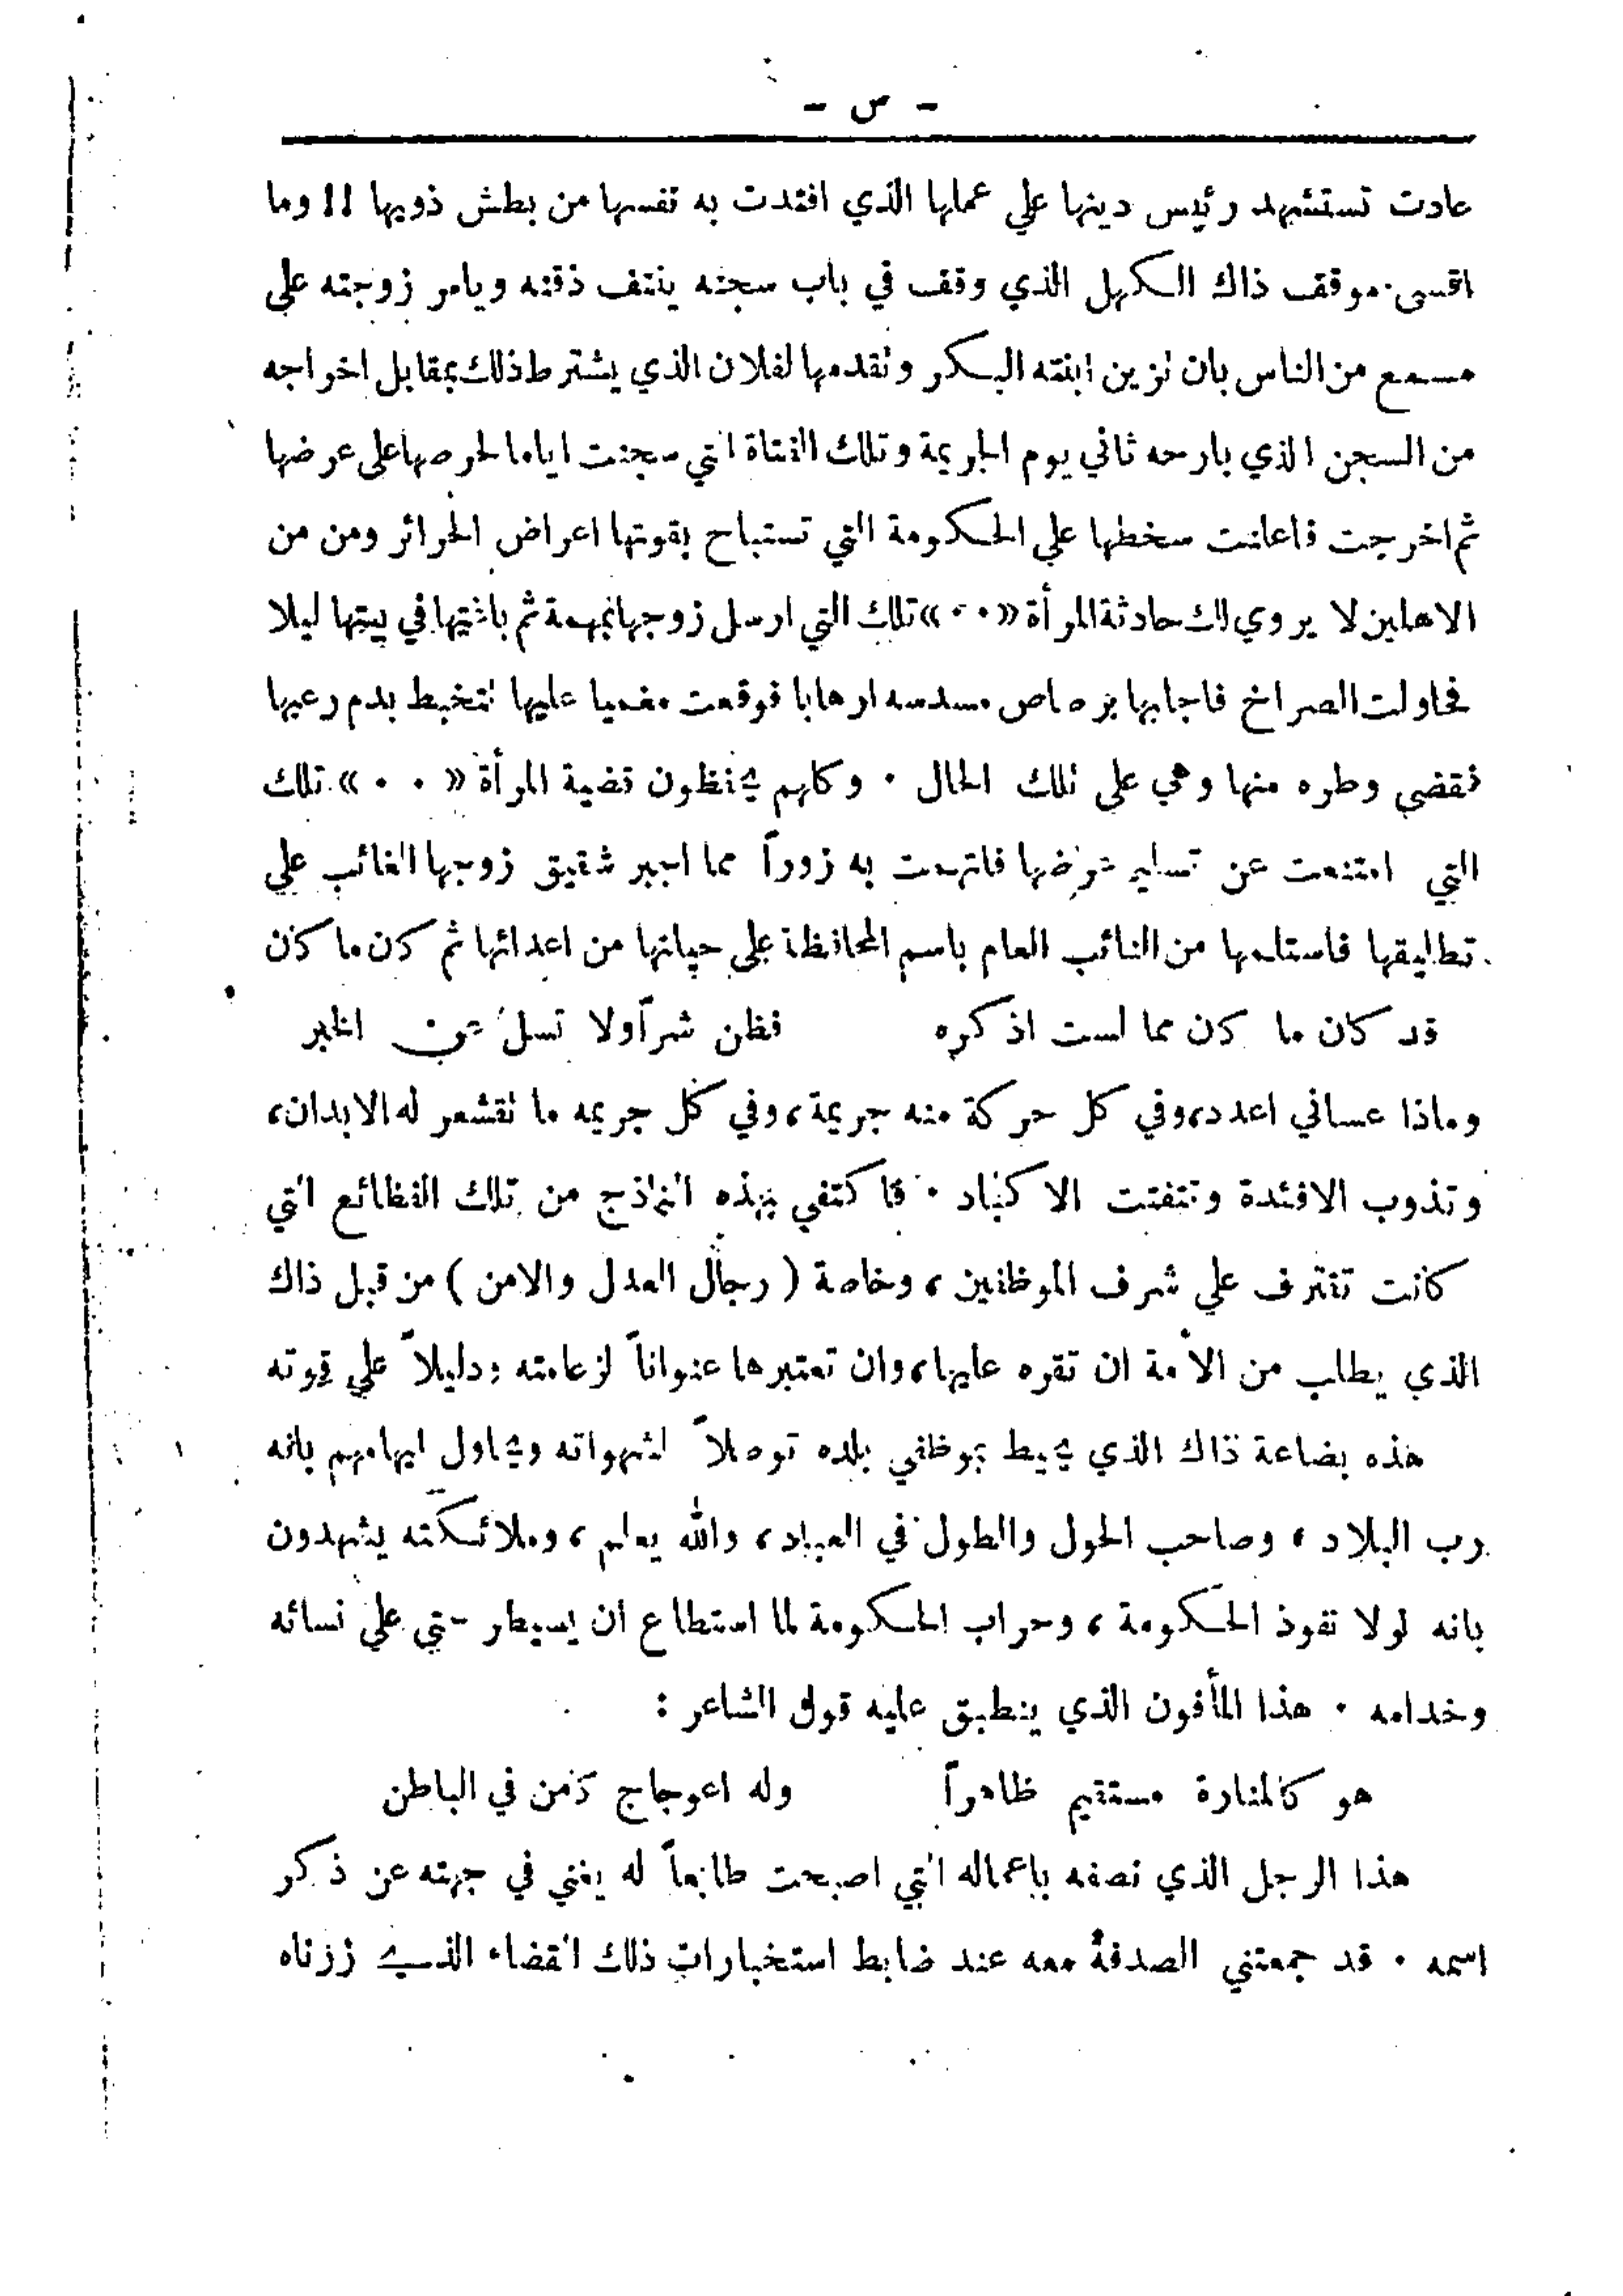 - س -
عادت تستشهد رئيس دينها على عملها الذي افتدت به نفسها من بطش ذويها !! وما
اقسى موقف ذاك الكهل الذي وقف في باب سجنه ينتف ذقنه ويامر زوجته على
مسمع من الناس بان تزين ابنته البكر وتقدمها لفلان الذي يشترط ذلك بمقابل اخراجه
من السجن الذي بارحه ثاني يوم الجريمة وتلك الفتاة التي سجنت اياما لحرصها على عرضها
ثم اخرجت فاعلنت سخطها على الحكومة التي تستباح بقوتها اعراض الحرائر ومن من
الاهلين لا يروي لك حادثة المرأة «٠٠» تلك التي ارسل زوجها بمهمة ثم باغتها في بيتها ليلا
فحاولت الصراخ فاجابها برصاص مسدسه ارهابا فوقعت مغميا عليها تتخبط بدم رعبها
فقضى وطره منها وهي على تلك الحال ٠ وكلهم يحفظون قضية المرأة «٠٠» تلك
التي امتنعت عن تسليم عرضها فاتهمت به زوراً مما اجبر شقيق زوجها الغائب على
تطليقها فاستلمها من النائب العام باسم المحافظة على حياتها من اعدائها ثم كان ما كان
قد كان ما كان مما لست اذكره فظن شراً ولا تسل عن الخبر
وماذا عساني اعدد، وفي كل حركة منه جريمة، وفي كل جريمه ما تقشعر له الابدان،
وتذوب الافئدة وتتفتت الاكباد ٠ فاكتفي بهذه النماذج من تلك الفظائع التي
كانت تقترف على شرف الموظفين، وخاصة ( رجال العدل والامن ) من قبل ذاك
الذي يطلب من الأمة ان تقره عليها، وان تعتبرها عنواناً لزعامته ودليلاً على قوته
هذه بضاعة ذاك الذي يحيط بموظفي بلده توصلاً لشهواته ويحاول ايهامهم بانه
رب البلاد، وصاحب الحول والطول في العباد، والله يعلم، وملائكته يشهدون
بانه لولا نفوذ الحكومة، وحراب الحكومة لما استطاع ان يسيطر حتى على نسائه
وخدامه ٠ هذا المأفون الذي ينطبق عليه قول الشاعر :
هو كالمنارة مستقيم ظاهراً وله اعوجاج كامن في الباطن
هذا الرجل الذي نصفه باعماله التي اصبحت طابعاً له يغني في جهته عن ذكر
اسمه ٠ قد جمعتني الصدفة معه عند ضابط استخبارات ذلك القضاء الذي زرناه